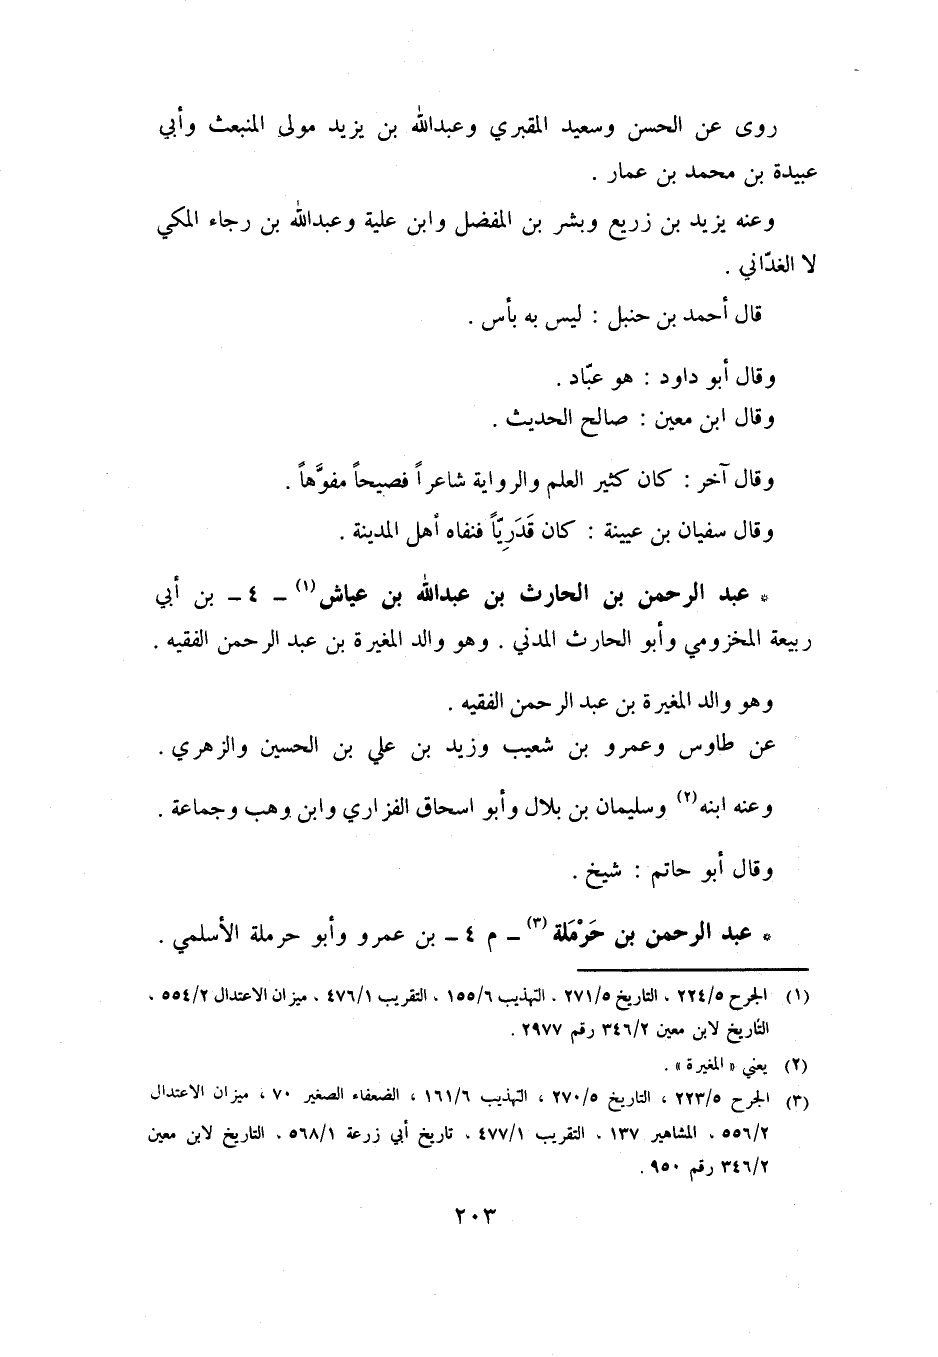 روى عن الحسن وسعيد المقبري وعبدالله بن يزيد مولى المنبعث وأبي
عبيدة بن محمد بن عمار .
وعنه يزيد بن زريع وبشر بن المفضل وابن علية وعبدالله بن رجاء المكي
لا الغدّاني .
قال أحمد بن حنبل : ليس به بأس .
وقال أبو داود : هو عبّاد .
وقال ابن معين : صالح الحديث .
وقال آخر : كان كثير العلم والرواية شاعراً فصيحاً مفوَّهاً .
وقال سفيان بن عيينة : كان قَدَرِيّاً فنفاه أهل المدينة .
* عبد الرحمن بن الحارث بن عبدالله بن عياش (١) ـ ٤ ـ بن أبي
ربيعة المخزومي وأبو الحارث المدني . وهو والد المغيرة بن عبد الرحمن الفقيه .
وهو والد المغيرة بن عبد الرحمن الفقيه .
عن طاوس وعمرو بن شعيب وزيد بن علي بن الحسين والزهري .
وعنه ابنه (٢) وسليمان بن بلال وأبو اسحاق الفزاري وابن وهب وجماعة .
وقال أبو حاتم : شيخ .
* عبد الرحمن بن حَرْمَلة (٣) ـ م ٤ ـ بن عمرو وأبو حرملة الأسلمي .
(١) الجرح ٢٢٤/٥ ، التاريخ ٢٧١/٥ . التهذيب ١٥٥/٦ ، التقريب ٤٧٦/١ ، ميزان الاعتدال ٥٥٤/٢ ،
التاريخ لابن معين ٣٤٦/٢ رقم ٢٩٧٧ .
(٢) يعني « المغيرة » .
(٣) الجرح ٢٢٣/٥ ، التاريخ ٢٧٠/٥ ، التهذيب ١٦١/٦ ، الضعفاء الصغير ٧٠ ، ميزان الاعتدال
٥٥٦/٢ ، المشاهير ١٣٧ ، التقريب ٤٧٧/١ ، تاريخ أبي زرعة ٥٦٨/١ ، التاريخ لابن معين
٣٤٦/٢ رقم ٩٥٠ .
٢٠٣